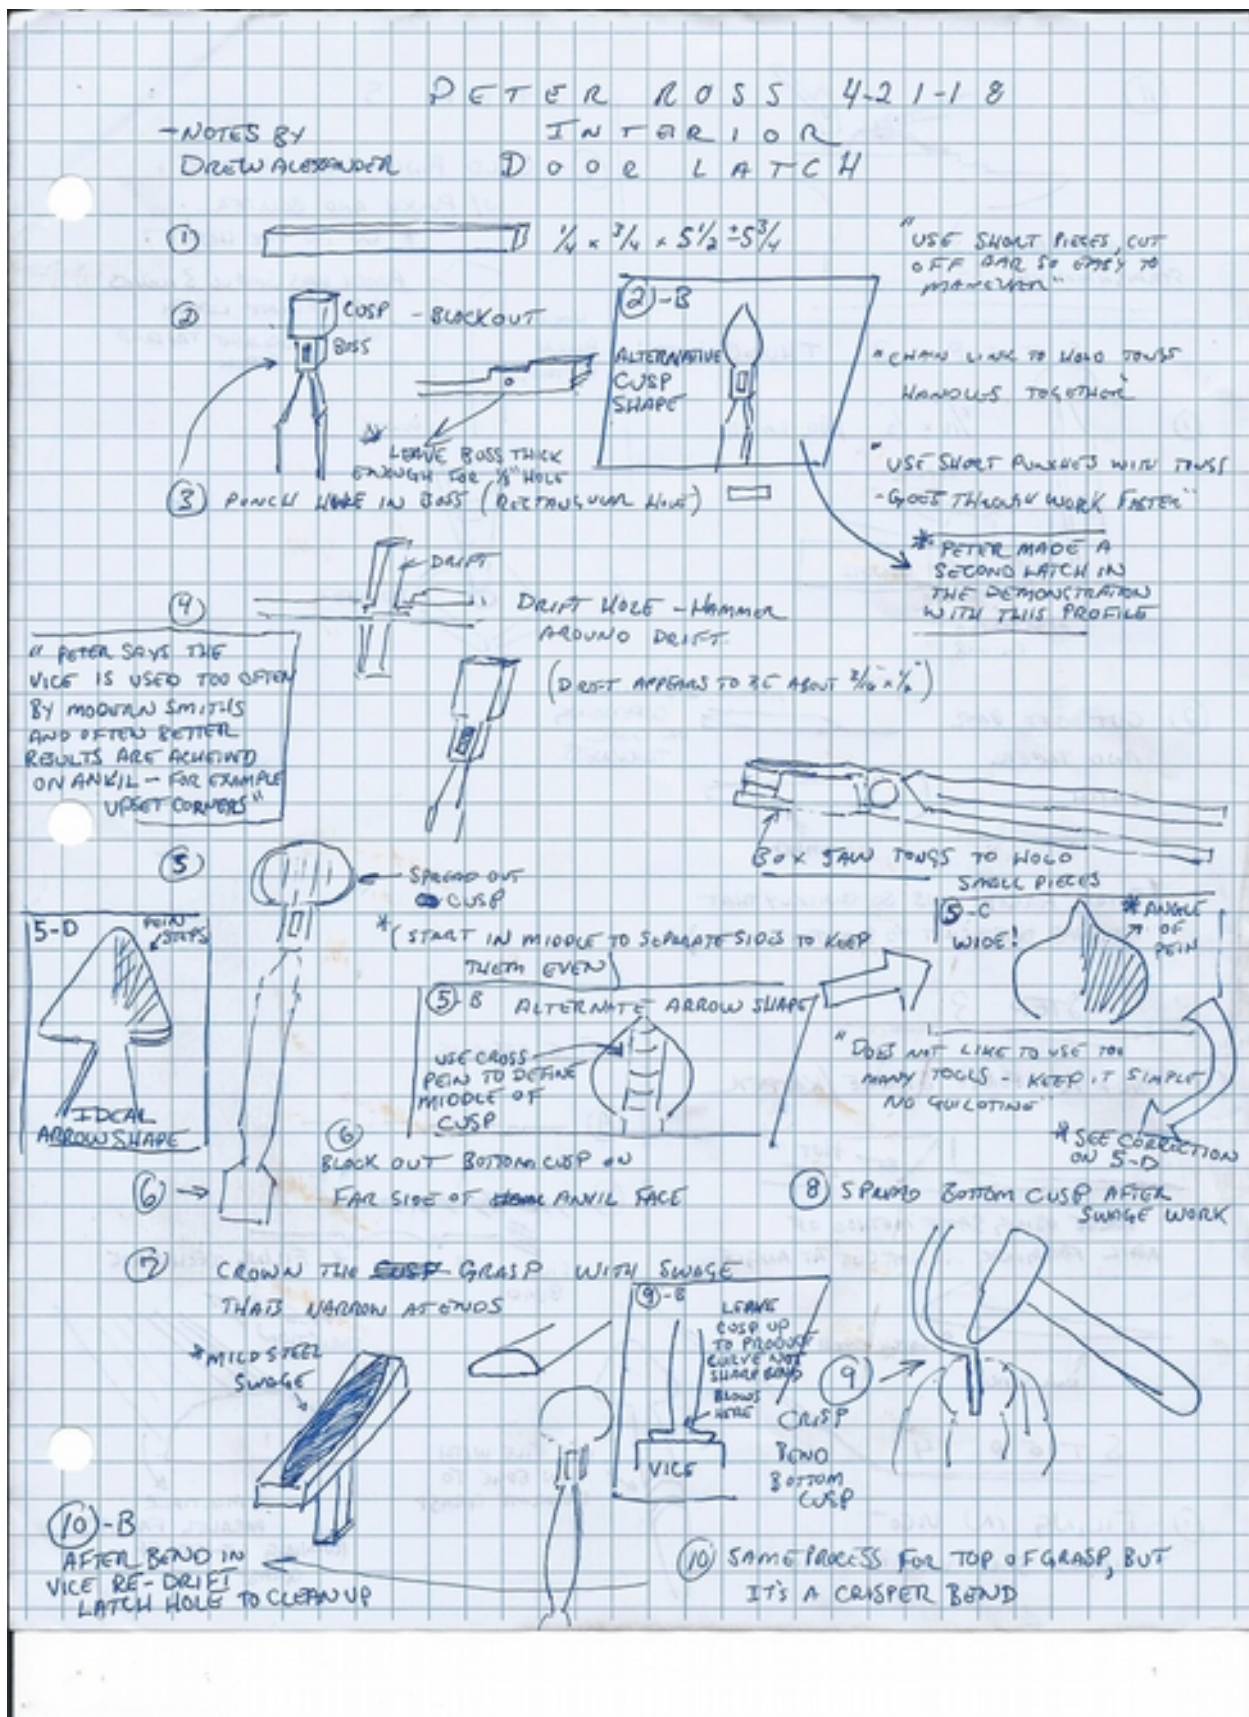 PETER ROSS 4-21-18
-NOTES BY
DREW ALEXANDER
INTERIOR
DOOR LATCH
① 1/4 x 3/4 x 5 1/2 ± 5 3/4
"USE SHORT PIECES, CUT
OFF BAR SO EASY TO
MANEUVER"
②
CUSP - BLOCKOUT
BOSS
* LEAVE BOSS THICK
ENOUGH FOR 1/8" HOLE
②-B
ALTERNATIVE
CUSP
SHAPE
"CHAIN LINK TO HOLD TONGS
HANDLES TOGETHER"
"USE SHORT PUNCHES WITH TONGS
-GOES THROUGH WORK FASTER"
③ PUNCH HOLE IN BOSS (RECTANGULAR HOLE)
* PETER MADE A
SECOND LATCH IN
THE DEMONSTRATION
WITH THIS PROFILE
④
DRIFT
DRIFT HOLE - HAMMER
AROUND DRIFT.
(DRIFT APPEARS TO BE ABOUT 3/16" x 1/2")
"PETER SAYS THE
VICE IS USED TOO OFTEN
BY MODERN SMITHS
AND OFTEN BETTER
RESULTS ARE ACHEIVED
ON ANKIL - FOR EXAMPLE
UPSET CORNERS"
BOX JAW TONGS TO HOLD
SMALL PIECES
⑤
SPREAD OUT
CUSP
* (START IN MIDDLE TO SEPERATE SIDES TO KEEP
THEM EVEN)
5-D
PEIN
STEPS
IDEAL
ARROW SHAPE
⑤-B ALTERNATE ARROW SHAPE
USE CROSS
PEIN TO DEFINE
MIDDLE OF
CUSP
⑤-C
WIDE!
* ANGLE
OF
PEIN
"DOES NOT LIKE TO USE TOO
MANY TOOLS - KEEP IT SIMPLE
NO GUILOTINE"
* SEE CORRECTION
ON 5-D
⑥
BLOCK OUT BOTTOM CUSP ON
FAR SIDE OF ANVIL FACE
⑥
⑧ SPREAD BOTTOM CUSP AFTER
SWAGE WORK
⑦ CROWN THE CUSP GRASP WITH SWAGE
THATS NARROW AT ENDS
* MILD STEEL
SWAGE
⑨-B
LEAVE
CUSP UP
TO PRODUCE
CURVE NOT
SHARP BEND
BLOWS
HERE
VICE
⑨
CRISP
BEND
BOTTOM
CUSP
⑩-B
AFTER BEND IN
VICE RE-DRIFT
LATCH HOLE TO CLEAN UP
⑩ SAME PROCESS FOR TOP OF GRASP, BUT
IT'S A CRISPER BEND